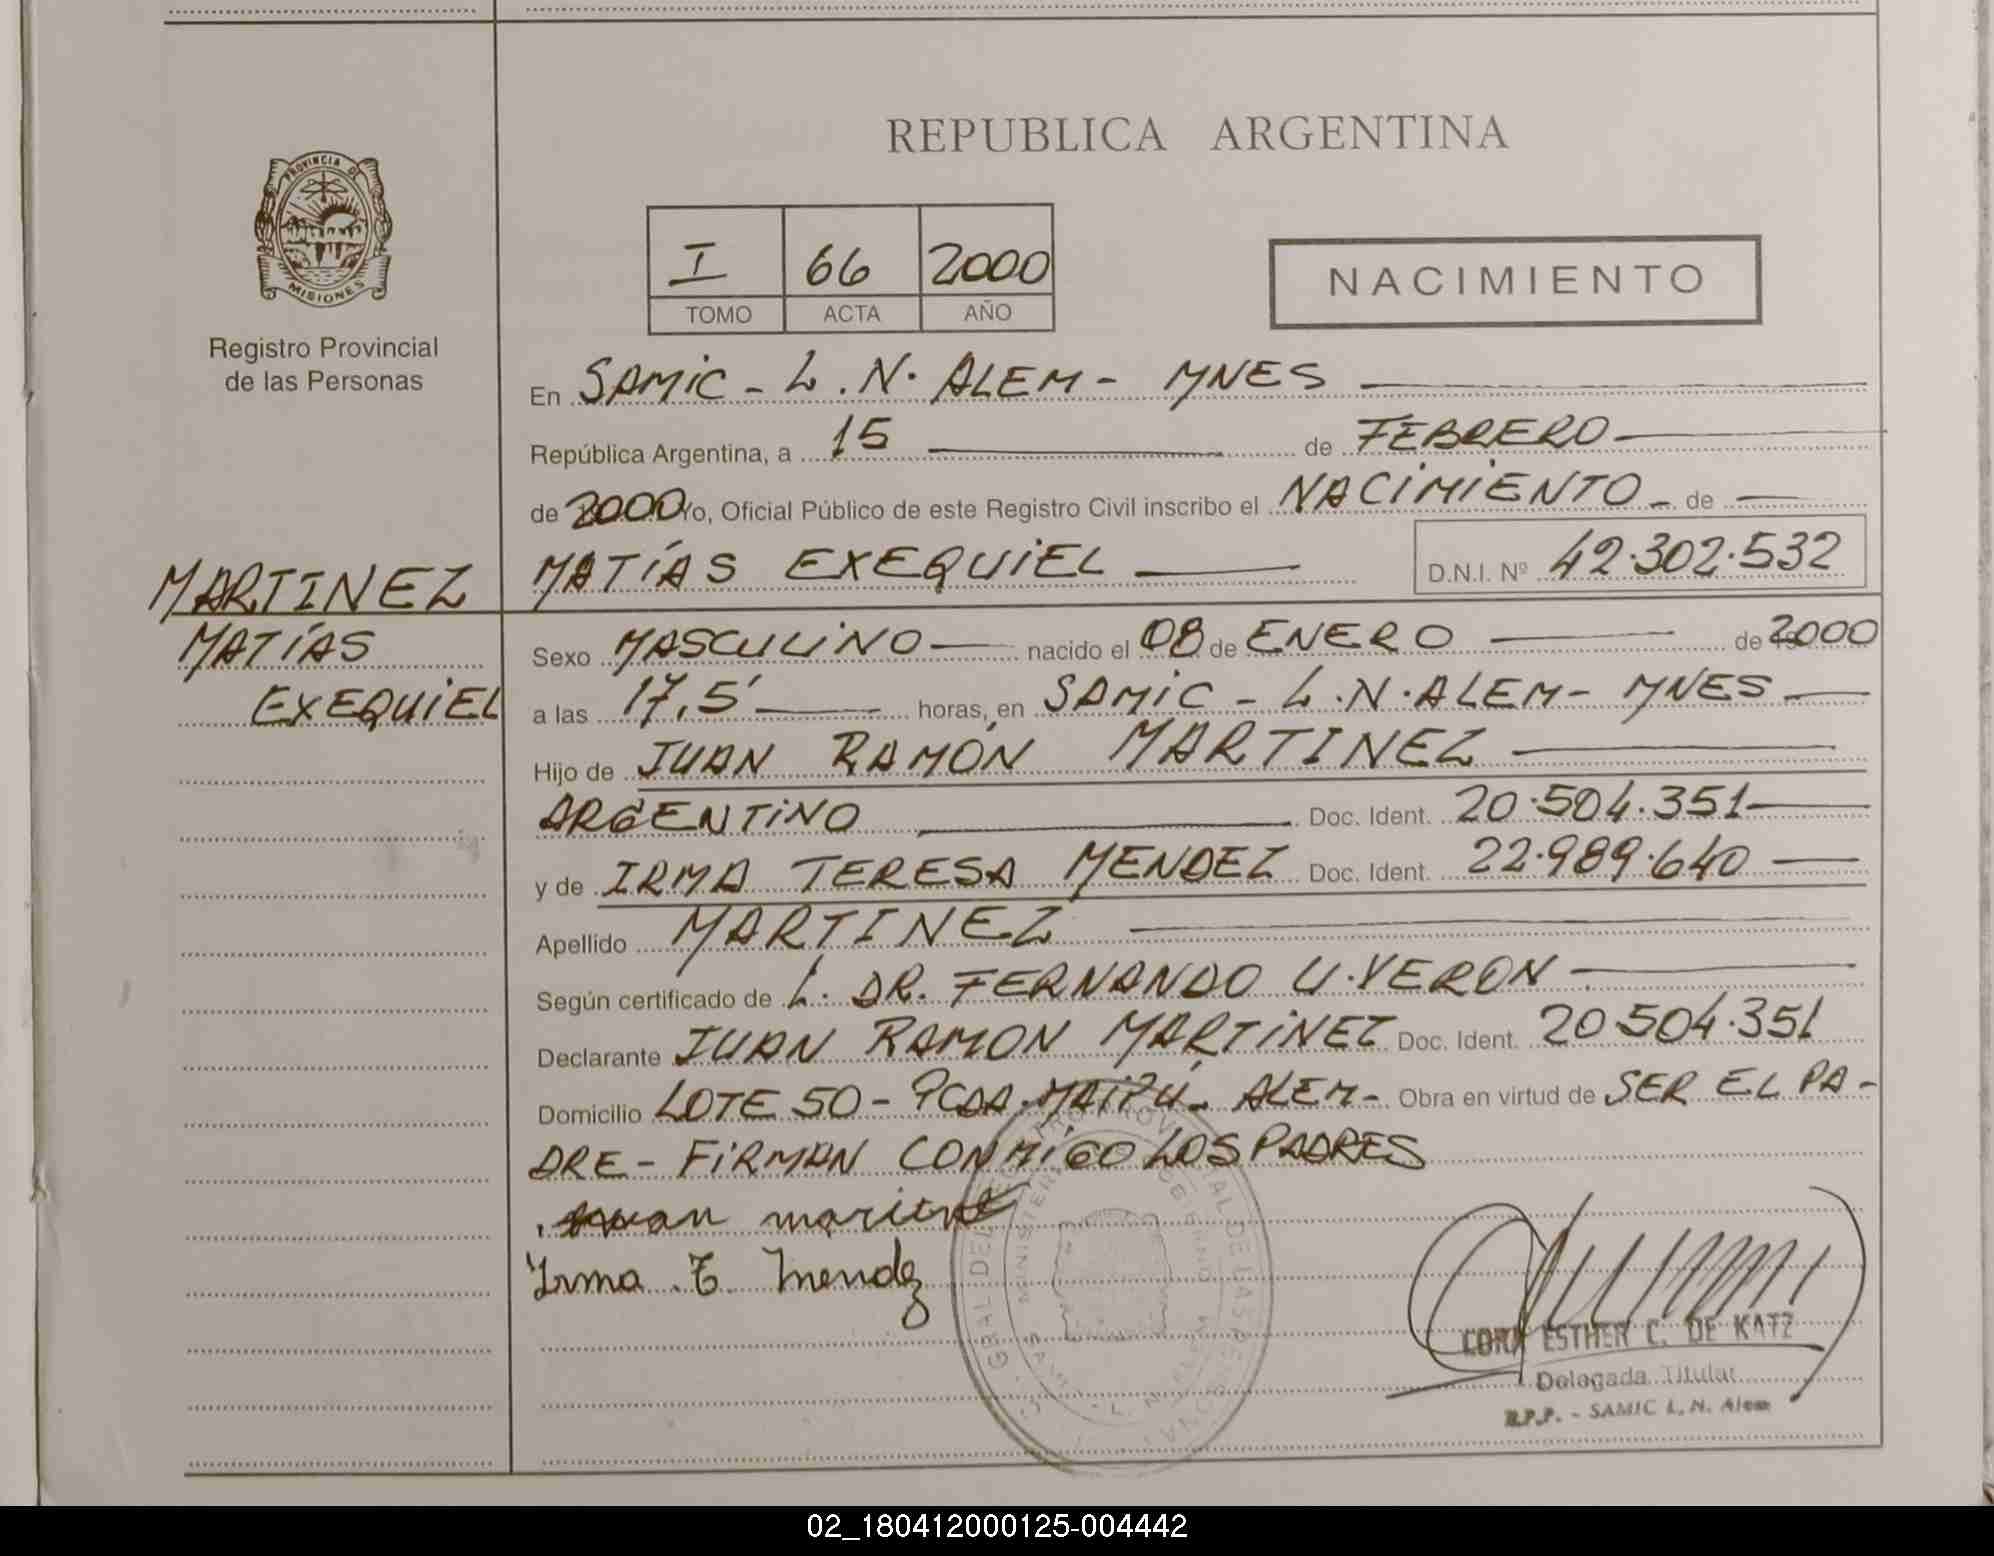 REPUBLICA ARGENTINA
PROVINCIA DE
MISIONES
Registro Provincial
de las Personas
I 66 2000
TOMO ACTA AÑO
NACIMIENTO
En SAMIC - L. N. ALEM - MNES
República Argentina, a 15 de FEBRERO
de 2000 Yo, Oficial Público de este Registro Civil inscribo el NACIMIENTO de
MARTINEZ
MATÍAS
EXEQUIEL
MATÍAS EXEQUIEL D.N.I. Nº 42.302.532
Sexo MASCULINO nacido el 08 de ENERO de 2000
a las 17,5' horas, en SAMIC - L.N. ALEM - MNES
Hijo de JUAN RAMÓN MARTINEZ
ARGENTINO Doc. Ident. 20.504.351
y de IRMA TERESA MENDEZ Doc. Ident. 22.989.640
Apellido MARTINEZ
Según certificado de L. DR. FERNANDO U. VERON
Declarante JUAN RAMON MARTINEZ Doc. Ident. 20.504.351
Domicilio LOTE 50 - PCDA. MAIPÚ - ALEM - Obra en virtud de SER EL PA-
DRE - FIRMAN CONMIGO LOS PADRES
Juan
Irma T. Mendez
CORA ESTHER C. DE KATZ
Delegada Titular
R.P.P. - SAMIC L. N. Alem
02_180412000125-004442